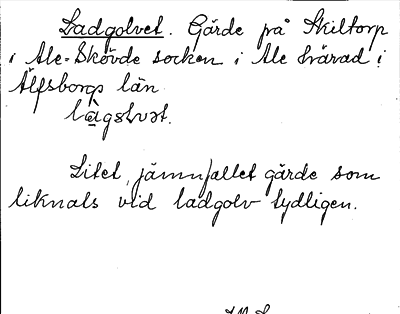 Ladgolvet. Gärde på Skiltorp
i Ale-Skövde socken i Ale härad i
Älfsborgs län
Litet, jämnfallet gärde som
liknats vid ladgolv tydligen.